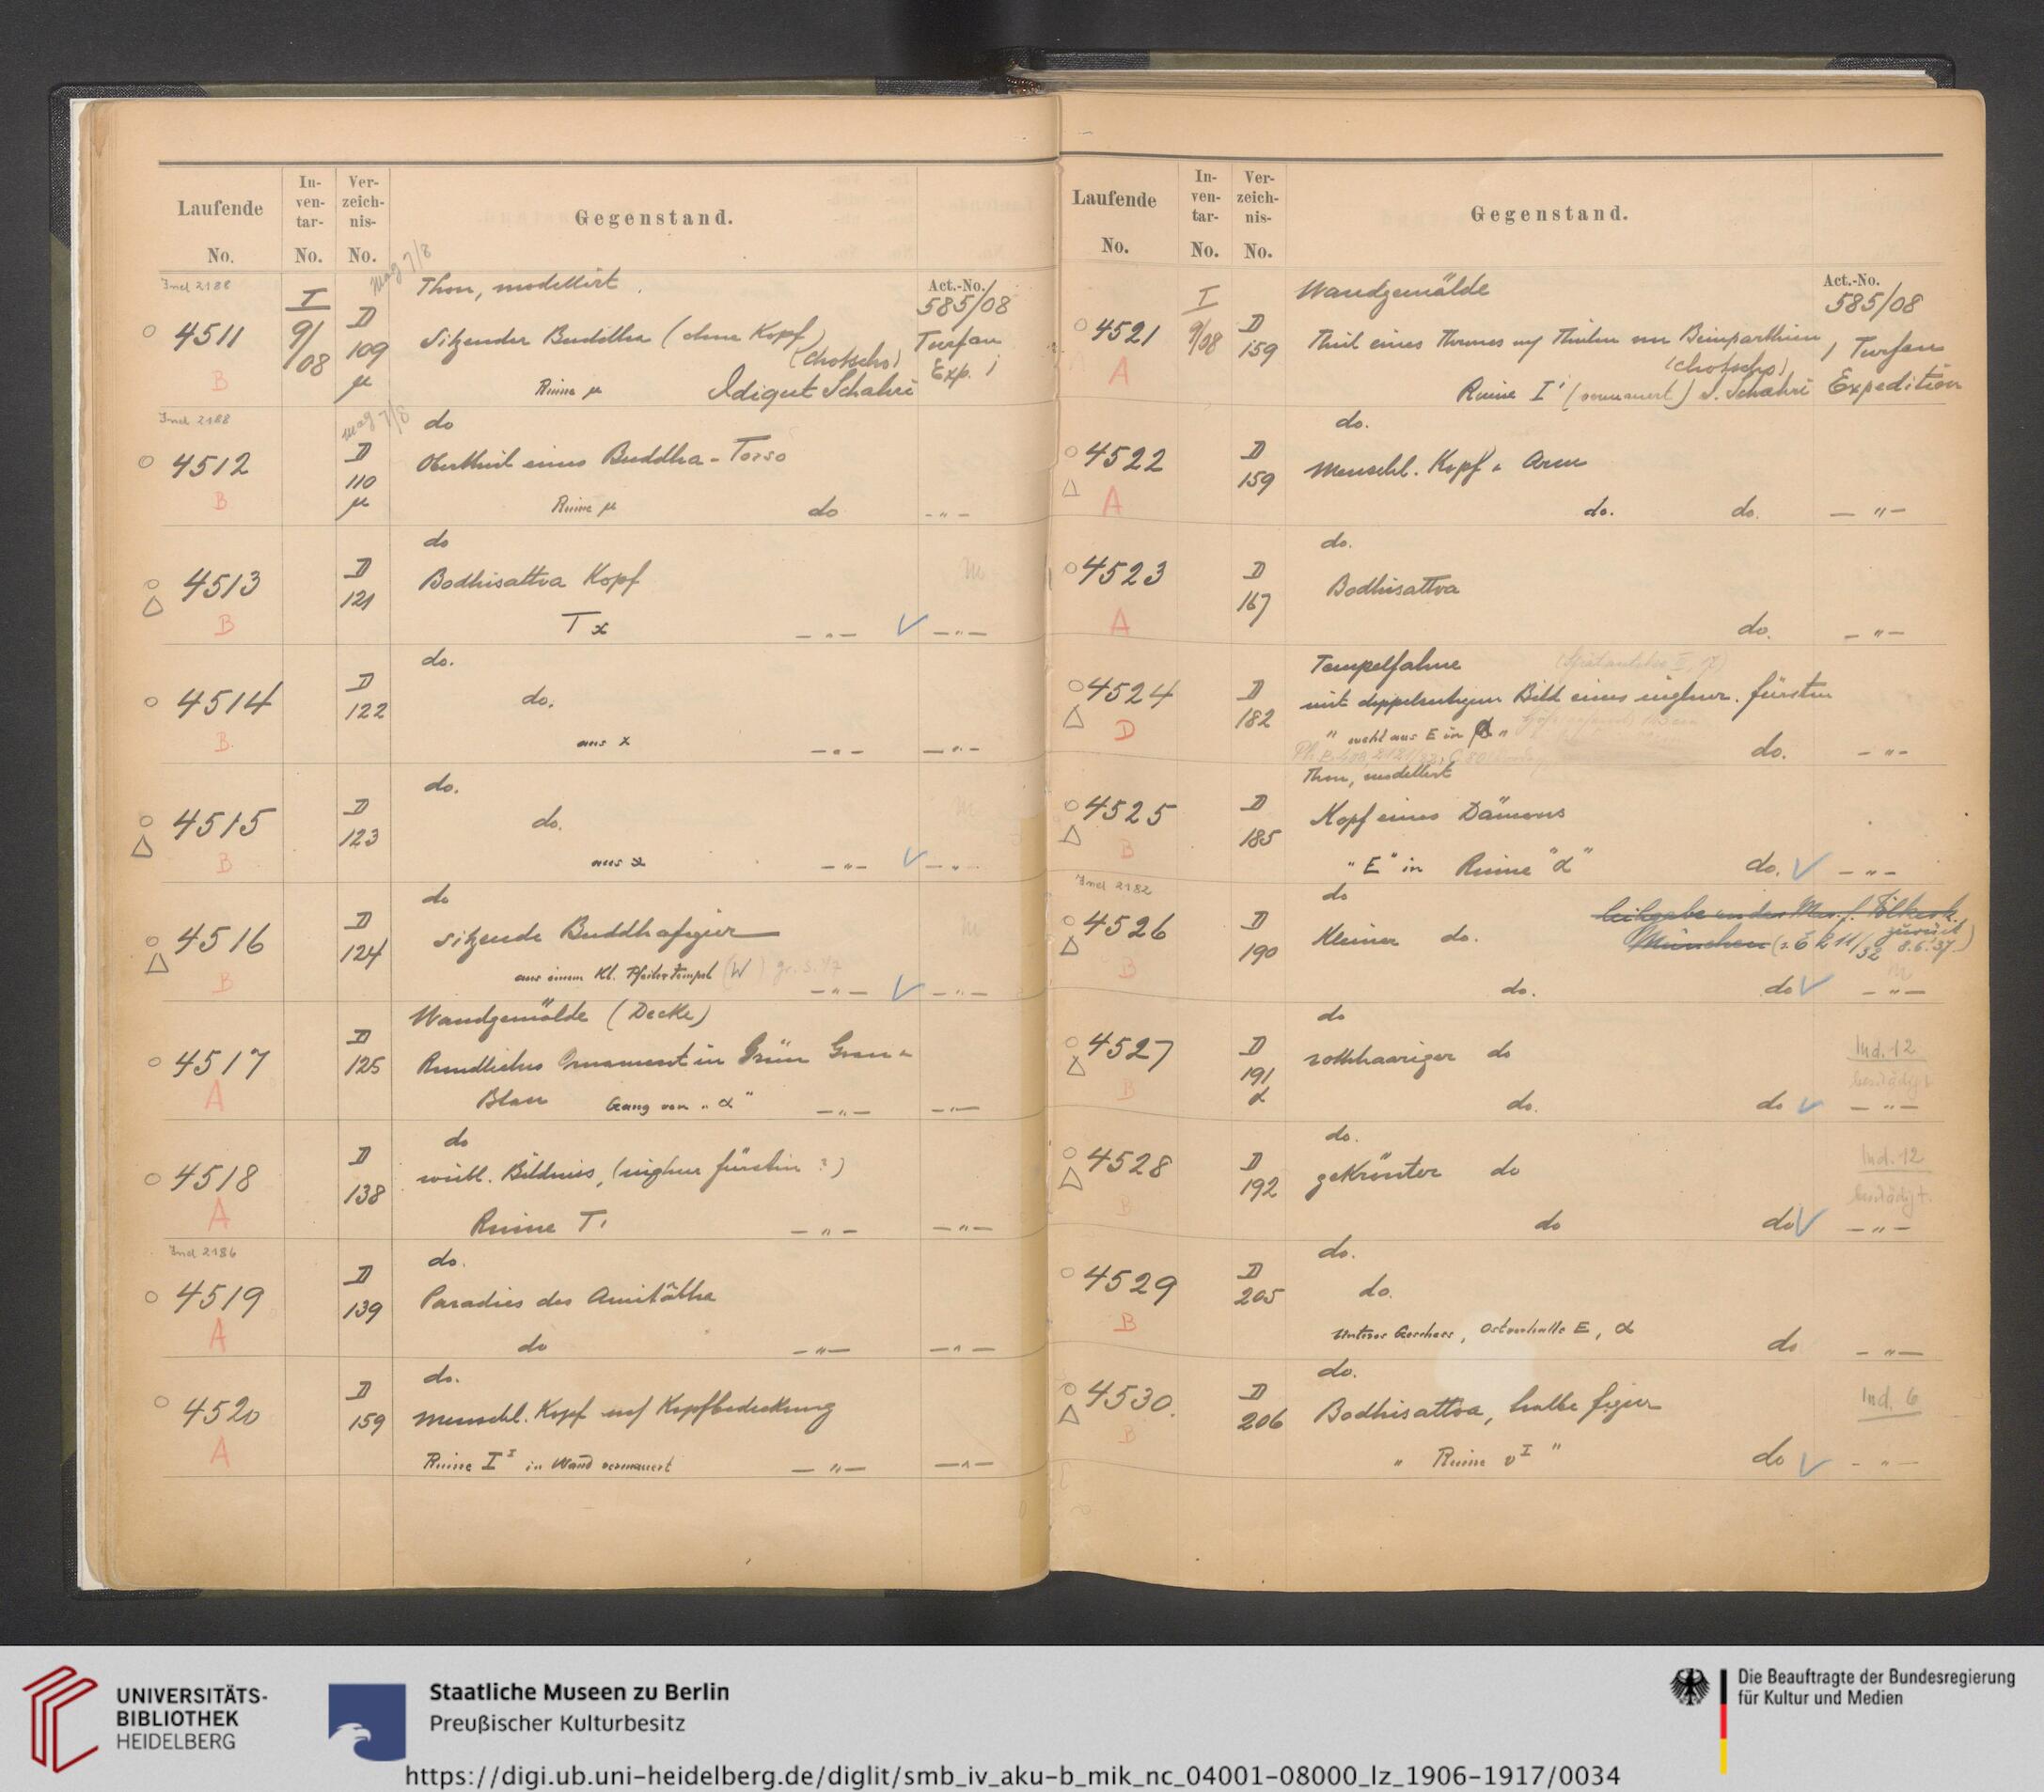 Laufende
No.
In-
ven-
tar-
No.
Ver-
zeich-
nis-
No.
Gegenstand.
Ind 2188
mag 7/8
Thon, modellirt.
Act.-No.
585/08
I
4511
9/08
D
109
µ
Sitzender Buddha (ohne Kopf)
(Chotscho)
Turfan
Exp. 1
B
Ruine µ
Idigut Schahri
Ind 2188
mag 7/8
do
4512
D
110
µ
Obertheil eines Buddha-Torso
B
Ruine µ
do
— " —
do
4513
D
121
Bodhisattva Kopf
m
B
T x
— " —
— " —
do.
4514
D
122
do.
B.
aus x
— " —
— " —
do.
4515
D
123
do.
m
B
aus x
— " —
— " —
do
4516
D
124
sitzende Buddhafigur
m
B
aus einem Kl. Pfeilertempel (W)
— " —
— " —
Wandgemälde (Decke)
4517
D
125
Rundliches Ornament in Grün Grau u
A
Blau
Gang von "α"
— " —
— " —
do
4518
D
138
weibl. Bildniss, (uighur fürstin ?)
A
Ruine T'
— " —
— " —
Ind 2186
do.
4519
D
139
Paradies des Amitâbha
A
do
— " —
— " —
do.
4520
D
159
menschl. Kopf auf Kopfbedeckung
A
Ruine I I in Wand vermauert
— " —
— " —
Laufende
No.
In-
ven-
tar-
No.
Ver-
zeich-
nis-
No.
Gegenstand.
Wandgemälde
Act.-No.
585/08
I
4521
9/08
D
159
Theil eines Thrones
(Chotscho)
1 Turfan
A
Ruine I' (vermauert) I. Schahri
Expedition
do.
4522
D
159
menschl. Kopf u Arm
A
do.
do.
— " —
do.
4523
D
167
Bodhisattva
A
do.
— " —
Tempelfahne
(Spätantike III, 17)
4524
D
182
mit doppelseitigem Bild eines uighur. fürsten
D
" wohl aus E in α "
do.
— " —
Thon, modellirt
4525
D
185
Kopf eines Dämons
B
"E" in Ruine "α"
do.
— " —
Ind 2182
do
Leihgabe an das Mus. f. Völkerk.
4526
D
190
Kleiner do.
München
zurück
8.6.37
B
do.
do
— " —
do
4527
D
191
α
rothhaariger do
Ind. 12
beschädigt
B
do.
do
— " —
do.
4528
D
192
gekrönter do
Ind. 12
beschädigt.
B
do
do
— " —
do.
4529
D
205
do.
B
Unteres Geschoss, Ostvorhalle E, α
do
— " —
do.
4530.
D
206
Bodhisattva, halbe figur
Ind. 6
B
" Ruine v I "
do
— " —
UNIVERSITÄTS-
BIBLIOTHEK
HEIDELBERG
Staatliche Museen zu Berlin
Preußischer Kulturbesitz
Die Beauftragte der Bundesregierung
für Kultur und Medien
https://digi.ub.uni-heidelberg.de/diglit/smb_iv_aku-b_mik_nc_04001-08000_lz_1906-1917/0034